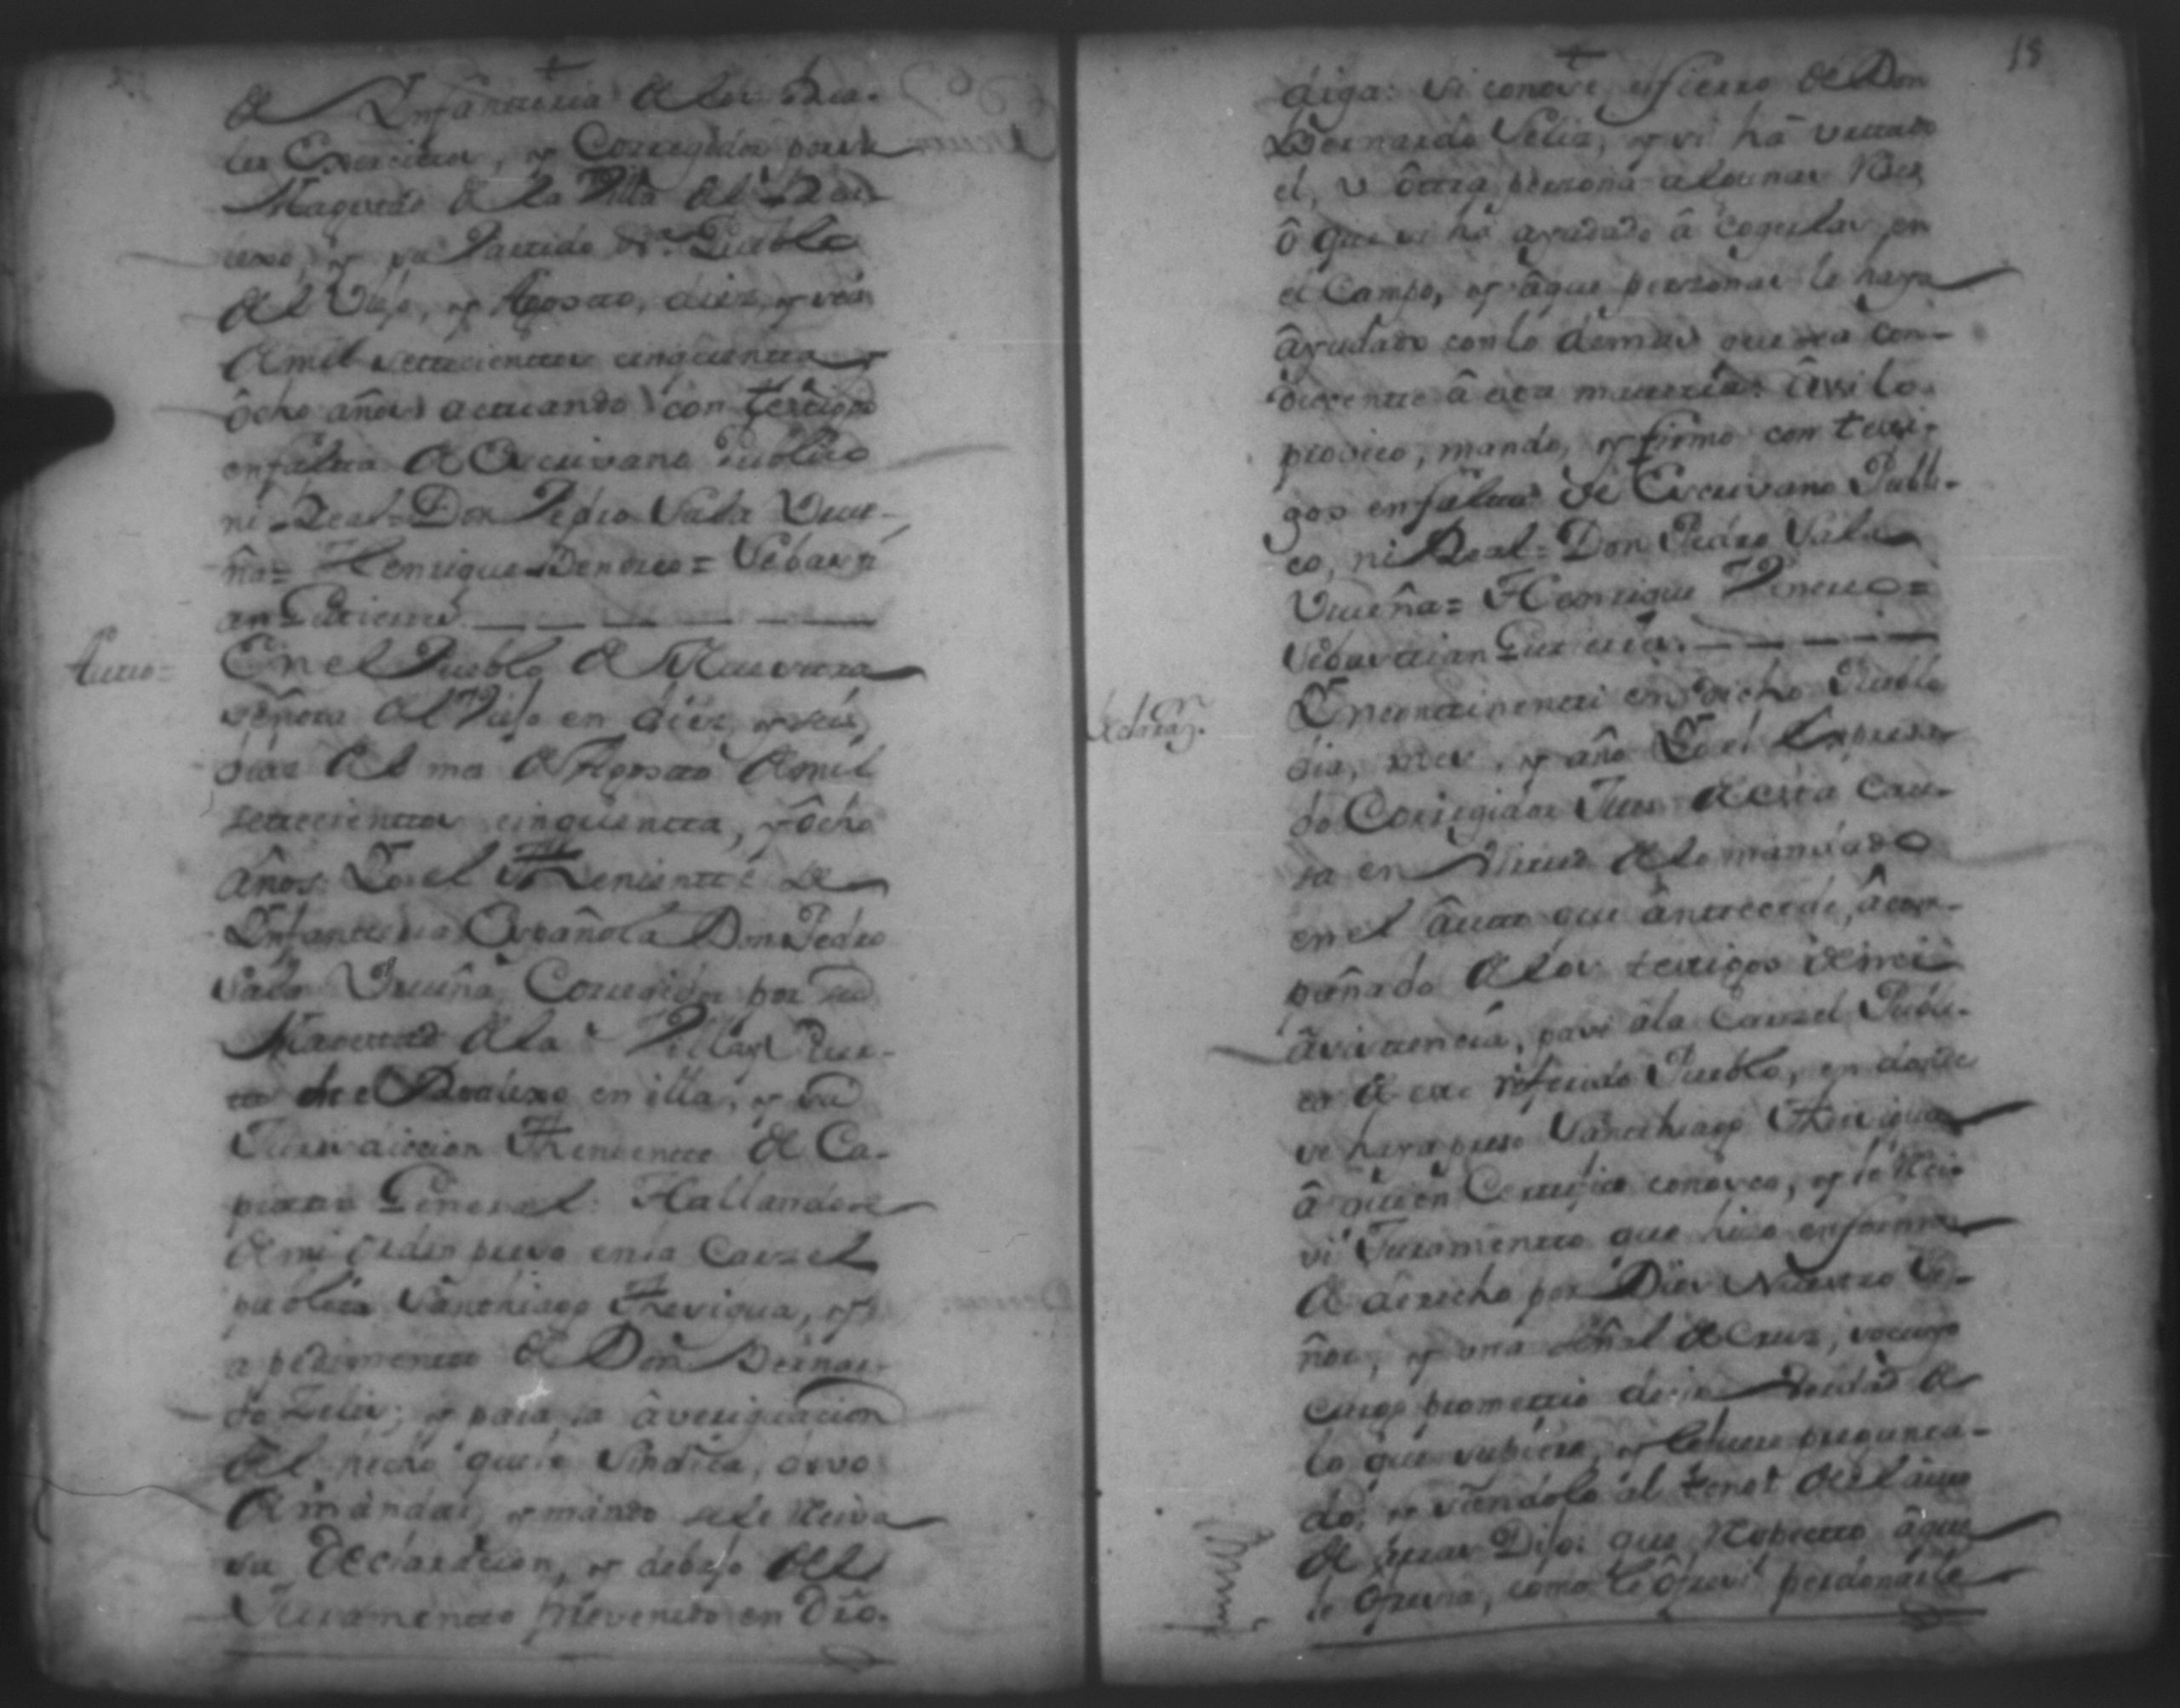 de Ynfanteria de los Rea-
les Exercitos, y Corregidor por su
Magestad de la Villa del Rea-
lexo, y su Partido &.a Pueblo
del Viejo, y Agosto, diez, y seis
de mil setecientos cinquenta, y
ôcho años actuando con testigos
en falta de Escrivano Publico
ni Real = Don Pedro Sala Urue-
ña = Henrique = Sebasti
an Gutierres
Auto =
En el Pueblo de Nuestra
señora del Viejo en diez, y seis,
dias del mes de Agosto de mil
setecientos cinquenta, y ôcho
años. Yo el Theniente de
Ynfanteria Española Don Pedro
Sala Urueña Corregidor por su
Magestad de la Villa, y Puer-
to de el Realexo en ella, y su
Jurisdiccion Theniente de Ca-
pitan General: Hallandose
de mi orden preso en la Carzel
publica Santhiago Thesigua, y
a pedimento de Don Bernar-
do Feliz; y para la âveriguacion
del hecho que le Sindica, devo
de mandar, y mando se le Reciva
su Declaracion, y debajo del
Juramento prevenido en Dro.
18
diga: si conose, el fierro de Don
Bernardo Feliz, y si hâ
el, u ôtra persona algunas Reses
ô que si hâ ayudado â cogerlas en
el Campo, y âque personas le haya
âyudado con lo demas que sea con-
ducente â esta materia: âssi lo
proveo, mando, y firmo con testi-
gos en falta de Escrivano Publi-
co, ni Real = Don Pedro Sala
Urueña = Henrique =
Sebastian Gutierres.
Declaraz.n
Yncontinenti en dicho Pueblo
dia, mes, y año Yo el Expresa-
do Corregidor Juez de esta Cau-
sa en Virtud de lo mandado
en el âuto que ântecede, âcom-
pañado de los testigos de mi
âsistencia, pasé âla Carzel Publi-
ca de este referido Pueblo, en donde
se haya preso Santhiago Thesigua
â quien Certifico conosco, y le Reci-
vi Juramento que hizo en forma
de derecho por Dios Nuestro Se-
ñor, y una señal de Cruz, so cuyo
cargo prometio decir Verdad de
lo que supiere, y le fuere pregunta-
do, y siendolo al tenor del âuto
de Dijo: que Respecto âque
le ôfrecia, como le ôfreci perdonarle